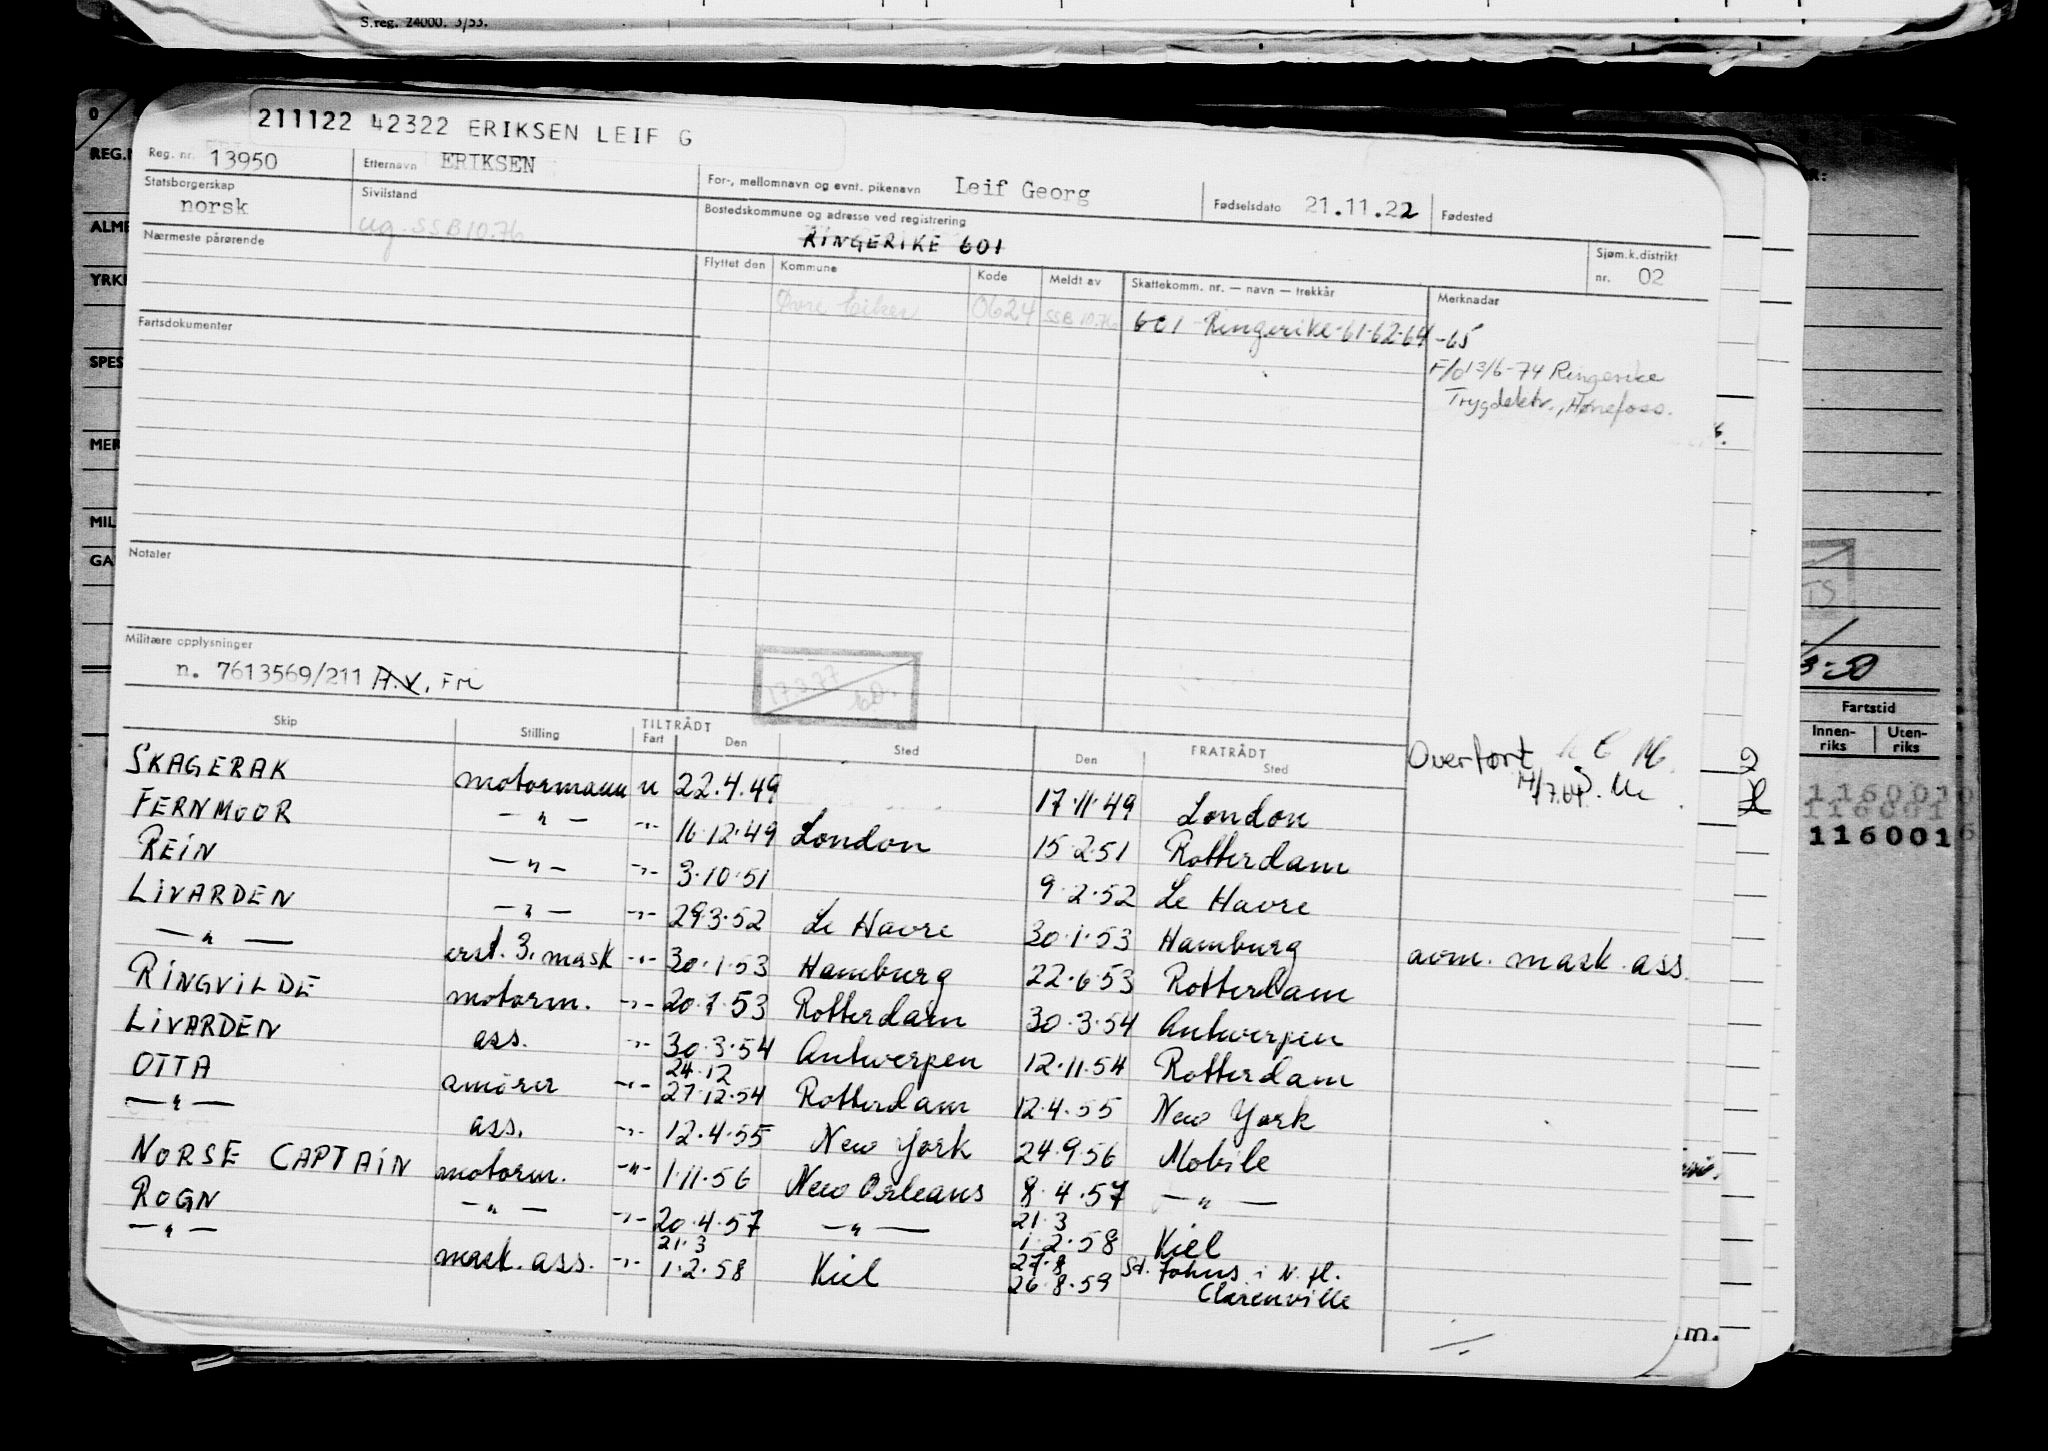 S.reg. 24000. 3/53.
211122 42322 ERIKSEN LEIF G
Reg. nr. 13950 Etternavn ERIKSEN For-, mellomnavn og evnt. pikenavn Leif Georg Fødselsdato 21.11.22 Fødested
Statsborgerskap norsk Sivilstand ug. SSB 10.76 Bostedskommune og adresse ved registrering RINGERIKE 601 Sjøm.k.distrikt nr. 02
Nærmeste pårørende Flyttet den Kommune Kode Meldt av Skattekomm. nr. — navn — trekkår Merknadar
Øvre Eiker 0624 SSB 10.76 601 Ringerike-61-62-64-65
Fartsdokumenter
F/d 13/6-74 Ringerike
Trygdektr., Hønefoss.
Notaler
Militære opplysninger
n. 7613569/211 A.V. FM
17.3.77
Skip Stilling TILTRÅDT Fart Den Sted FRATRÅDT Den Sted
Overført
SKAGERAK motormann u 22.4.49 17.11.49 London
FERNMOOR —"— -"- 16.12.49 London 15.2.51 Rotterdam
REIN —"— -"- 3.10.51 9.2.52 Le Havre
LIVARDEN —"— -"- 29.3.52 Le Havre 30.1.53 Hamburg
—"— erst. 3. mask -"- 30.1.53 Hamburg 22.6.53 Rotterdam avm. mask. ass.
RINGVILDE motorm. -"- 20.7.53 Rotterdam 30.3.54 Antwerpen
LIVARDEN ass. -"- 30.3.54 Antwerpen 12.11.54 Rotterdam
24.12
OTTA smører -"- 27.12.54 Rotterdam 12.4.55 New York
—"— ass. -"- 12.4.55 New York 24.9.56 Mobile
NORSE CAPTAIN motorm. -"- 1.11.56 New Orleans 8.4.57 —"—
21.3
ROGN —"— -"- 20.4.57 —"— 1.2.58 Kiel
21.3 27.8 St. Johns i N. fl.
—"— mask. ass. -"- 1.2.58 Kiel 26.8.59 Clarenville
0
REG.N
ALME
YRKE
SPES
MER
MIL
GA
3-50
Fartstid
Innen-riks Uten-riks
116001
116001
116001
m.